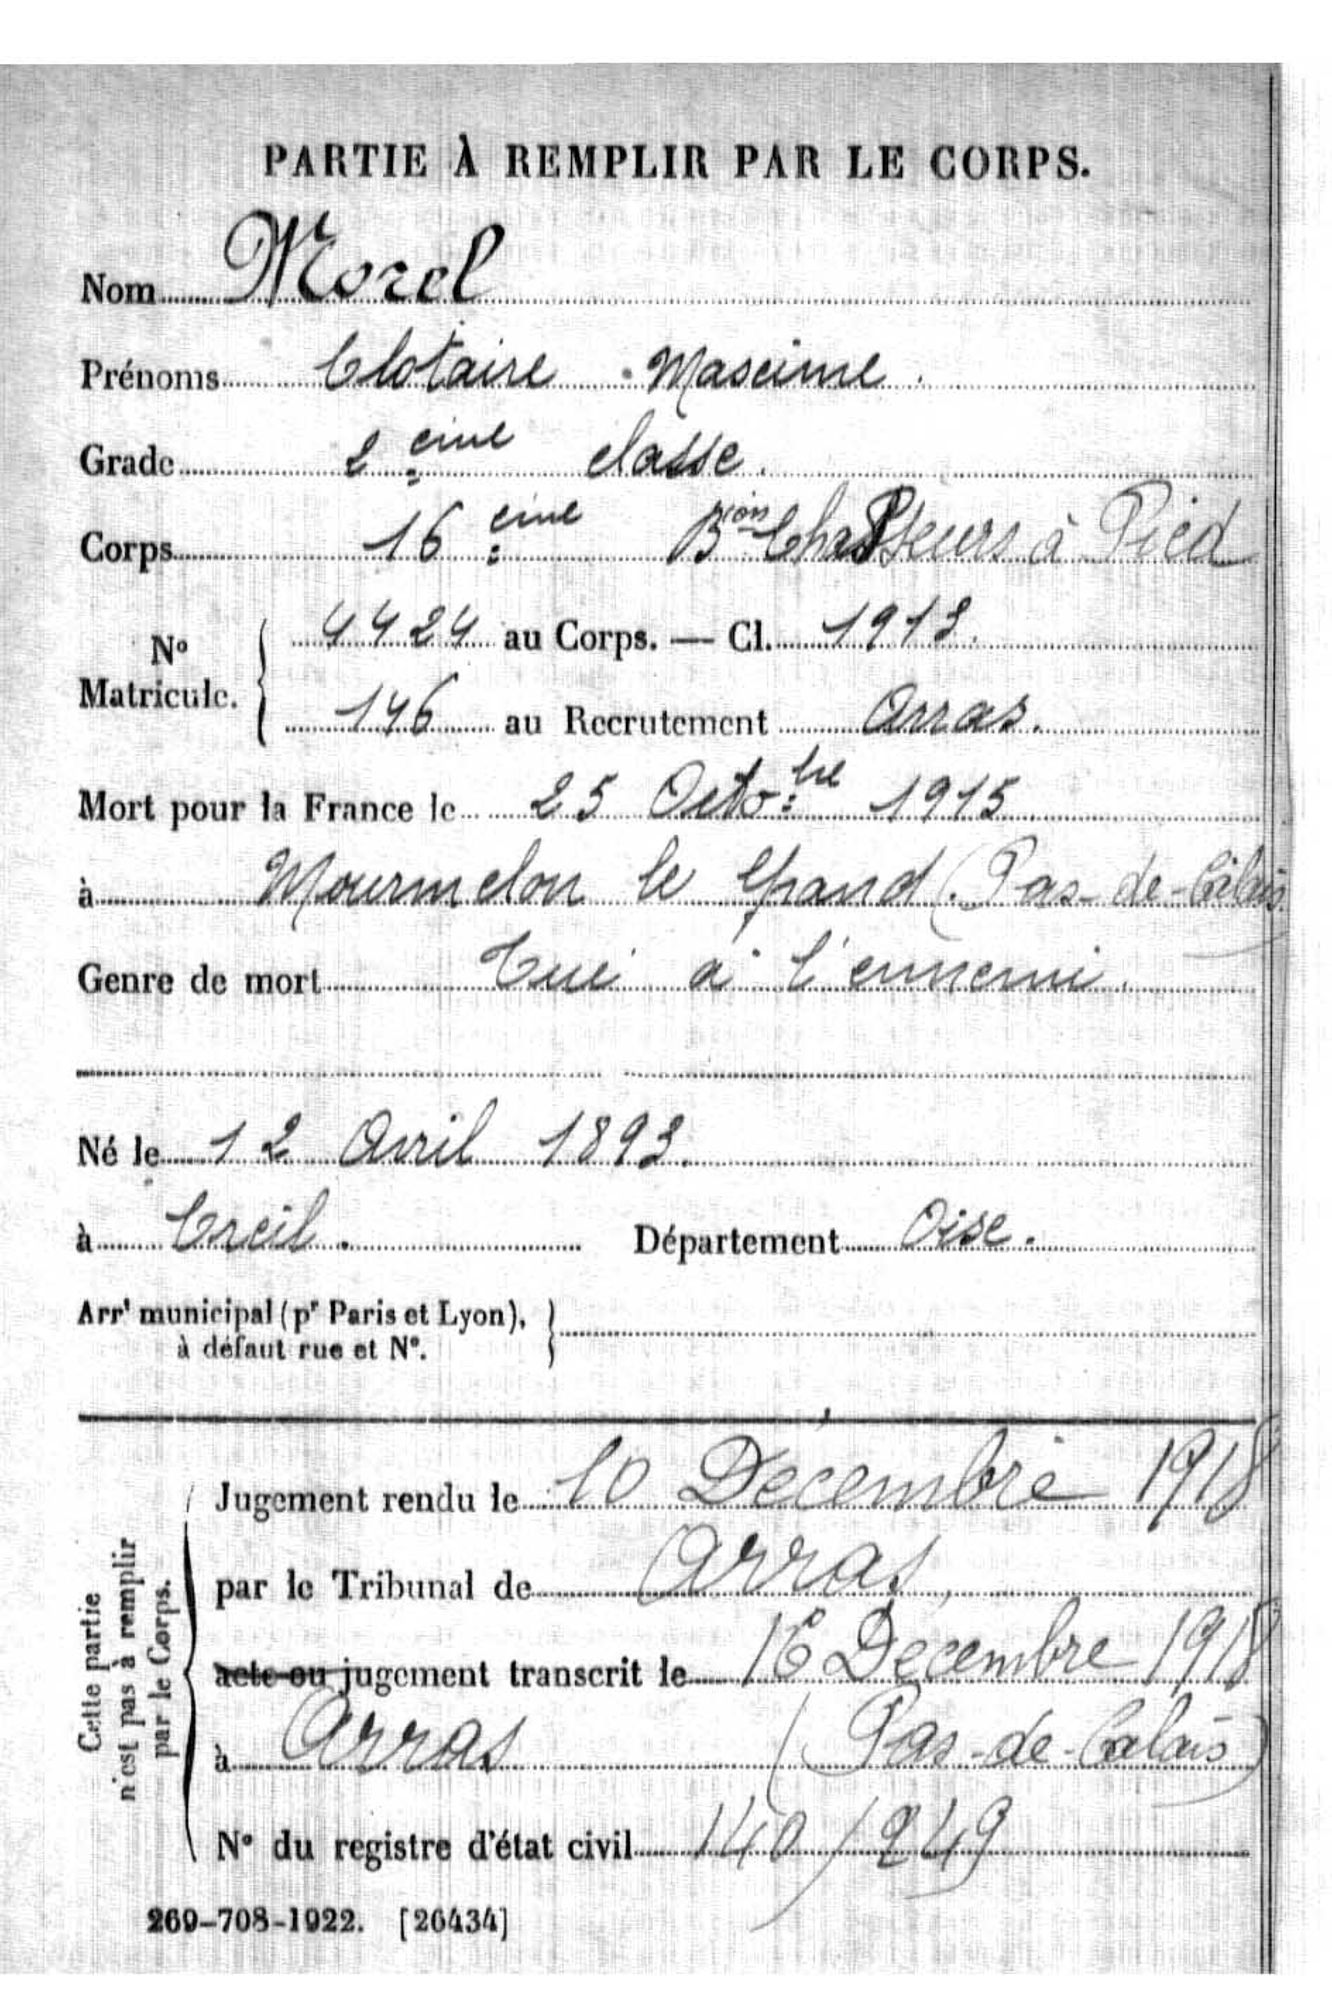 PARTIE À REMPLIR PAR LE CORPS.
Nom Morel
Prénoms Clotaire Maxime
Grade 2 ème classe.
Corps 16 ème Bion Chasseurs à Pied
No Matricule. 4424 au Corps. — Cl. 1913.
146 au Recrutement Arras.
Mort pour la France le 25 Octobre 1915
à Mourmelon le Grand (Pas-de-Calais)
Genre de mort Tué à l'ennemi.
Né le 12 Avril 1893.
à Creil. Département Oise.
Arrt municipal (pr Paris et Lyon),
à défaut rue et No.
Cette partie
n'est pas à remplir
par le Corps.
Jugement rendu le 10 Décembre 1918
par le Tribunal de Arras,
acte ou jugement transcrit le 16 Décembre 1918
à Arras (Pas-de-Calais)
No du registre d'état civil 140/249
269-708-1922. [26434]